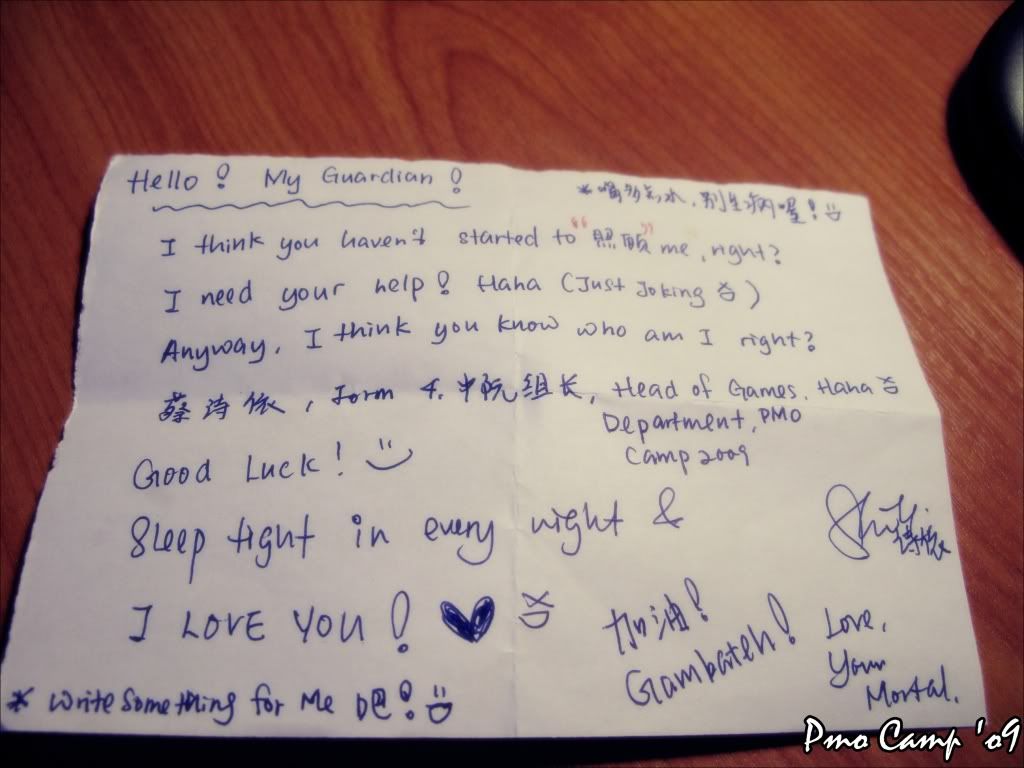 Hello! My Guardian!
*喝多点水,别生病喔!
I think you haven't started to "照顾" me, right?
I need your help! Haha (Just Joking)
Anyway, I think you know who am I right?
蔡诗依, Form 4. 中阮组长, Head of Games. Haha
Department, PMO
Camp 2009
Good Luck!
Sleep tight in every night &
I LOVE YOU!
诗依
加油!
Gambateh!
Love,
Your
Mortal.
* Write Something for Me 吧!
Pmo Camp '09